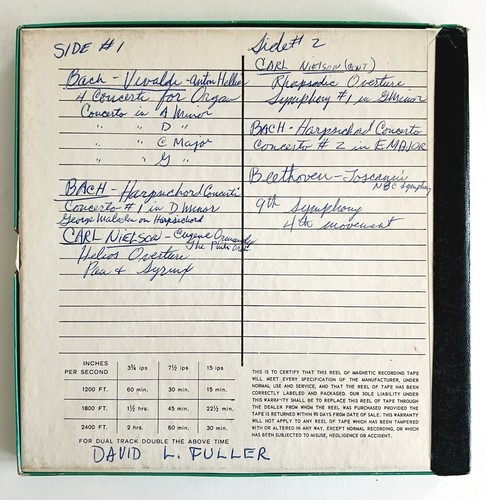 SIDE #1
Bach - Vivaldi - Anton Heiller
4 Concerti for Organ
Concerto in A Minor
" " D "
" " C Major
" " G "
BACH - Harpsichord Concerti
Concerto #1 in D minor
George Malcolm on Harpsichord
CARL NIELSON - Eugene Ormandy
The Phila Orch.
Helios Overture
Pan & Syrinx
Side #2
CARL NIELSON (CONT)
Rhapsodic Overture
Symphony #1 in G Minor
BACH - Harpsichord Concerto
Concerto #2 in E MAJOR
Beethoven - Toscanini
NBC Symphony
9th Symphony
4th movement
INCHES PER SECOND 3¾ ips 7½ ips 15 ips
1200 FT. 60 min. 30 min. 15 min.
1800 FT. 1½ hrs. 45 min. 22½ min.
2400 FT. 2 hrs. 60 min. 30 min.
FOR DUAL TRACK DOUBLE THE ABOVE TIME
THIS IS TO CERTIFY THAT THIS REEL OF MAGNETIC RECORDING TAPE
WILL MEET EVERY SPECIFICATION OF THE MANUFACTURER, UNDER
NORMAL USE AND SERVICE, AND THAT THE REEL OF TAPE HAS BEEN
CORRECTLY LABELED AND PACKAGED. OUR SOLE LIABILITY UNDER
THIS WARRANTY SHALL BE TO REPLACE THIS REEL OF TAPE THROUGH
THE DEALER FROM WHOM THE REEL WAS PURCHASED PROVIDED THE
TAPE IS RETURNED WITHIN 90 DAYS FROM DATE OF SALE. THIS WARRANTY
WILL NOT APPLY TO ANY REEL OF TAPE WHICH HAS BEEN TAMPERED
WITH OR ALTERED IN ANY WAY, EXCEPT NORMAL RECORDING, OR WHICH
HAS BEEN SUBJECTED TO MISUSE, NEGLIGENCE OR ACCIDENT.
DAVID L. FULLER